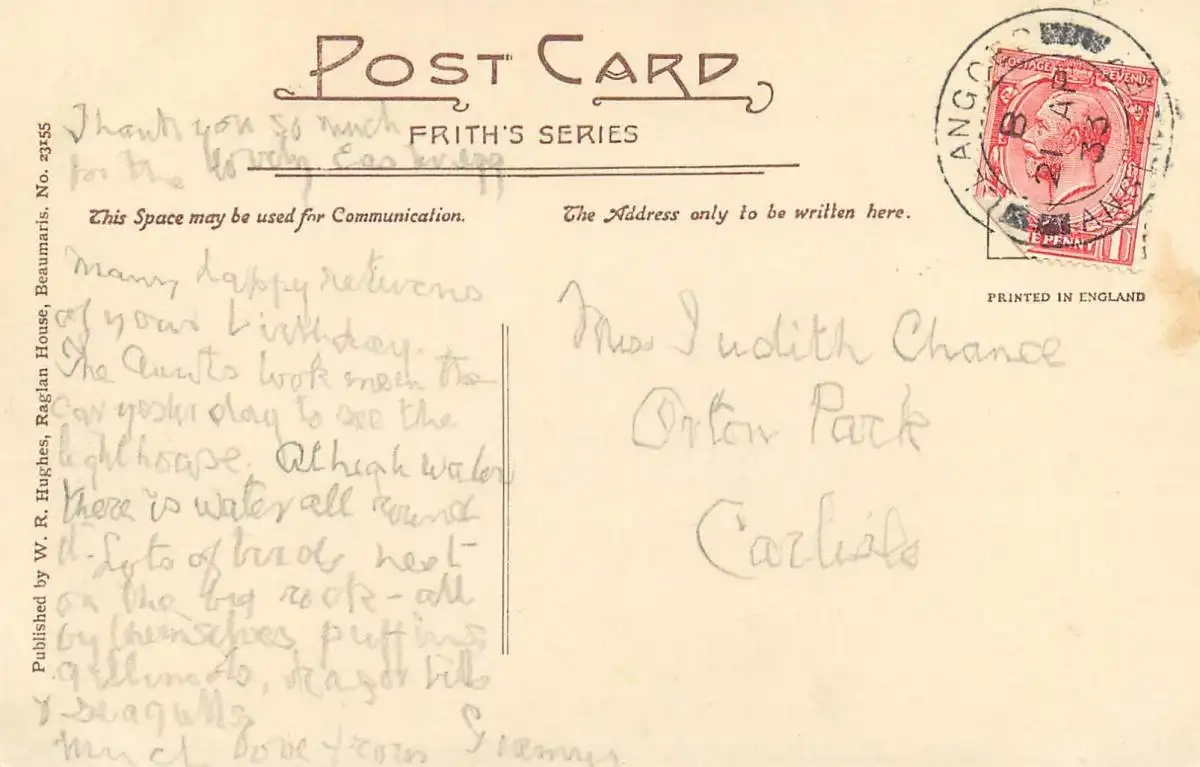 POST CARD
FRITH'S SERIES
Thank you so much
for the lovely Easter egg
This Space may be used for Communication.
The Address only to be written here.
Many happy returns
of your birthday.
The Aunts took me in the
car yesterday to see the
lighthouse. At high water
there is water all round
it. Lots of birds nest
on the big rock - all
by themselves puffins
guillimots, razor bills
& seagulls
Much love from
Miss Judith Chance
Orton Park
Carlisle
Published by W. R. Hughes, Raglan House, Beaumaris. No. 23155
LLANGOED
B
21 AP
33
POSTAGE REVENUE
E PENNY
PRINTED IN ENGLAND